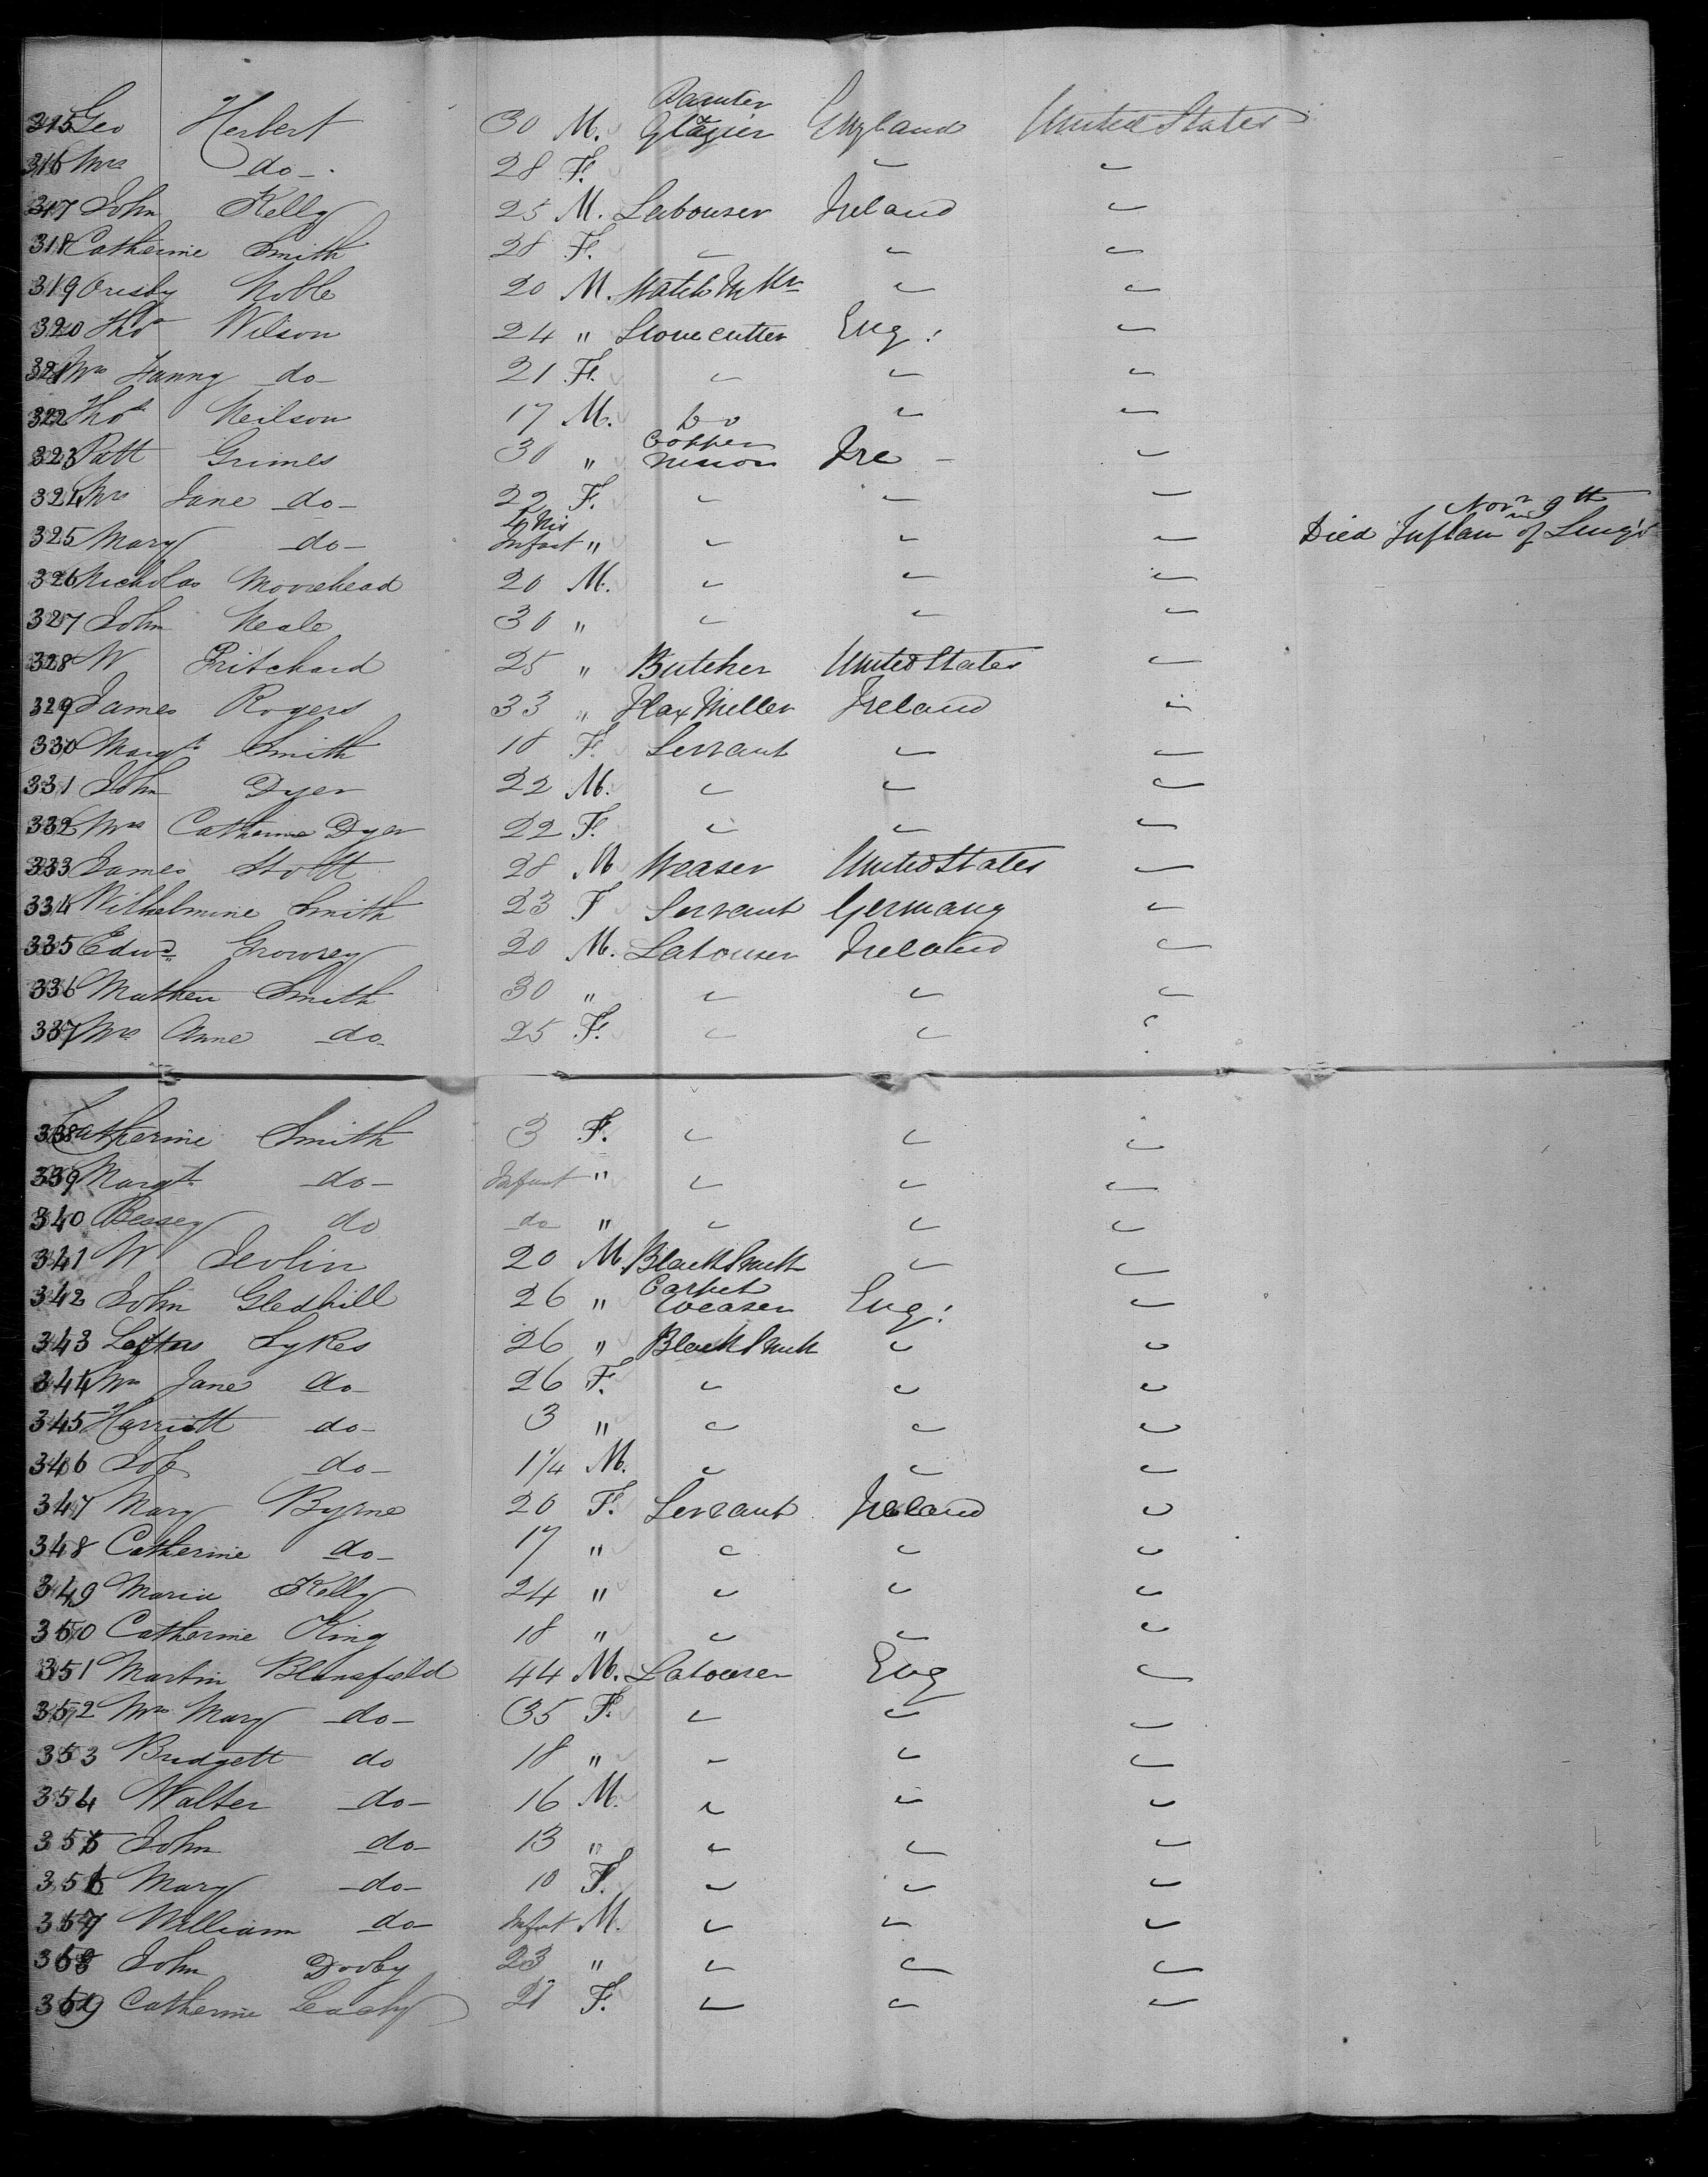 315 Geo Herbert 30 M. Painter Glazier England United States
316 Mrs do 28 F. " "
317 John Kelly 25 M. Labourer Ireland "
318 Catherine Smith 28 F. " " "
319 Oresby Noble 20 M. Watch Mkr " "
320 Thos Wilson 24 " Stonecutter Eng: "
321 Mrs Fanny do 21 F. " " "
322 Thos Neilson 17 M. Do " "
323 Patt Grimes 30 " Copper Ire "
324 Mrs Jane do 22 F. " " "
325 Mary do Infant " " " " Died Novr 9th Inflamn of Lungs
326 Nicholas Moorehead 20 M. " " "
327 John Neale 30 " " " "
328 W Pritchard 25 " Butcher United States "
329 James Rogers 33 " Flax Miller Ireland "
330 Margt Smith 18 F. Servant " "
331 John Dyer 22 M. " " "
332 Mrs Catherine Dyer 22 F. " " "
333 James Stott 28 M Weaver United States "
334 Wilhelmine Smith 23 F Servant Germany "
335 Edwd Growrey 20 M. Labourer Ireland "
336 Mathew Smith 30 " " " "
337 Mrs Anne do 25 F. " " "
338 Catherine Smith 3 F. " " "
339 Margt do Infant " " " "
340 Bessey do do " " " "
341 W Devlin 20 M. BlackSmith " "
342 John Gledhill 26 " Carpet Weaver Eng: "
343 Loftus Sykes 26 " BlackSmith " "
344 Mrs Jane do 26 F. " " "
345 Harriott do 3 " " " "
346 Job do 1 1/4 M. " " "
347 Mary Byrne 20 F. Servant Ireland "
348 Catherine do 17 " " " "
349 Maria Kelly 24 " " " "
350 Catherine King 18 " " " "
351 Martin Blansfield 44 M. Labourer Eng "
352 Mrs Mary do 35 F. " " "
353 Bridgett do 18 " " " "
354 Walter do 16 M. " " "
355 John do 13 " " " "
356 Mary do 10 F. " " "
357 William do Infnt M. " " "
358 John Dooby 23 " " " "
359 Catherine Leady 21 F. " " "